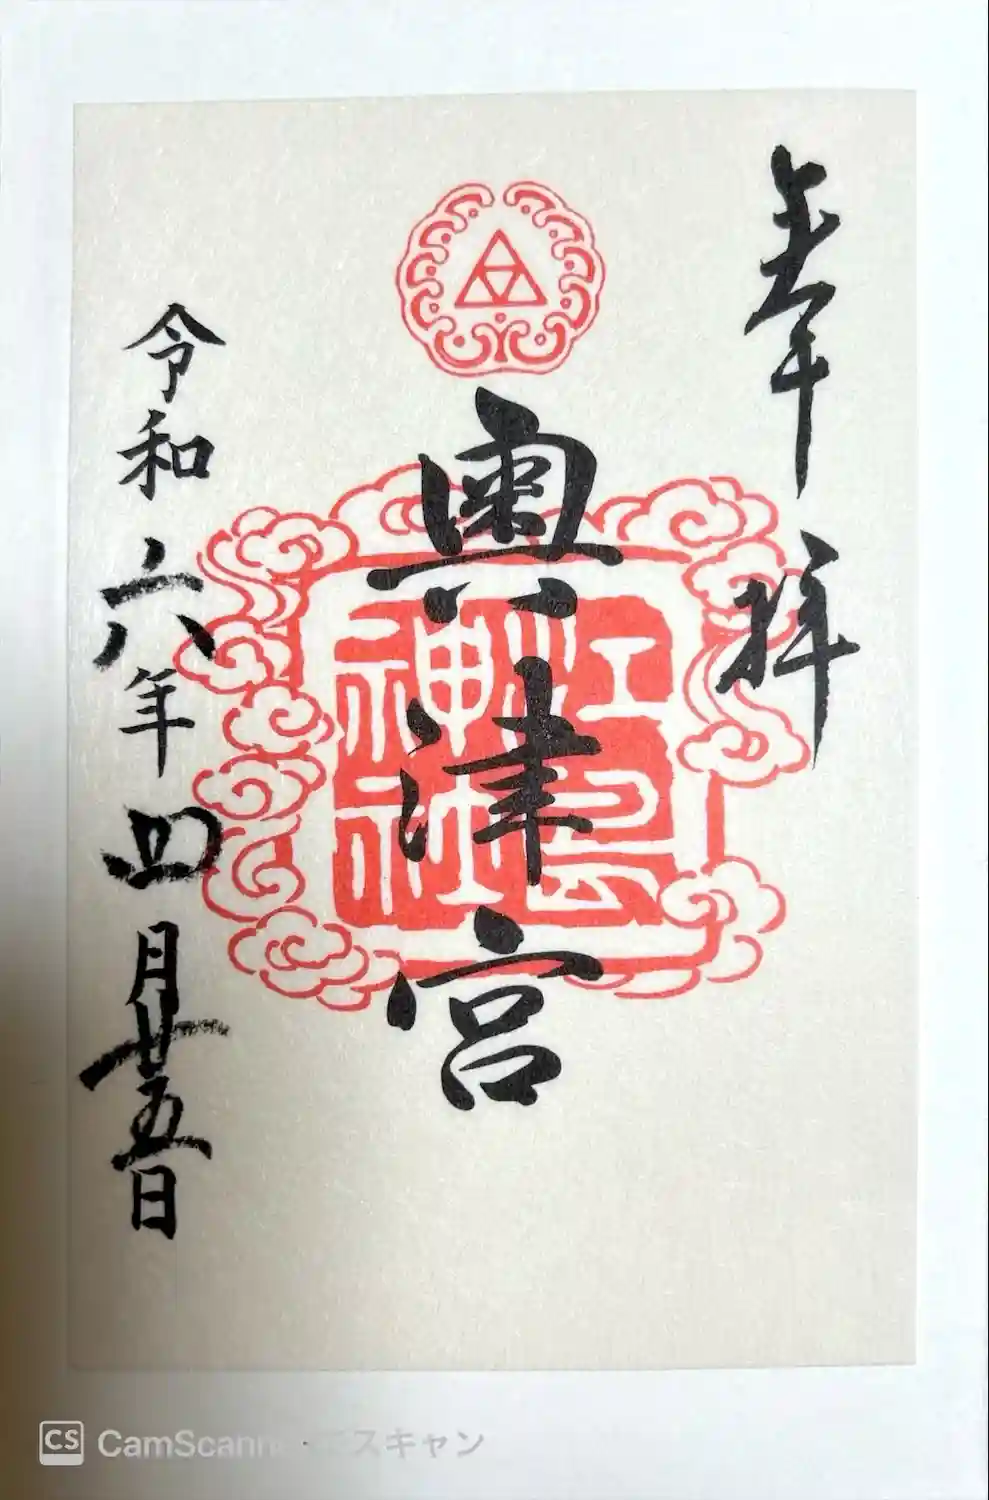 奉拝
奥津宮
江島神社
令和六年四月廿五日
CS CamScann スキャン